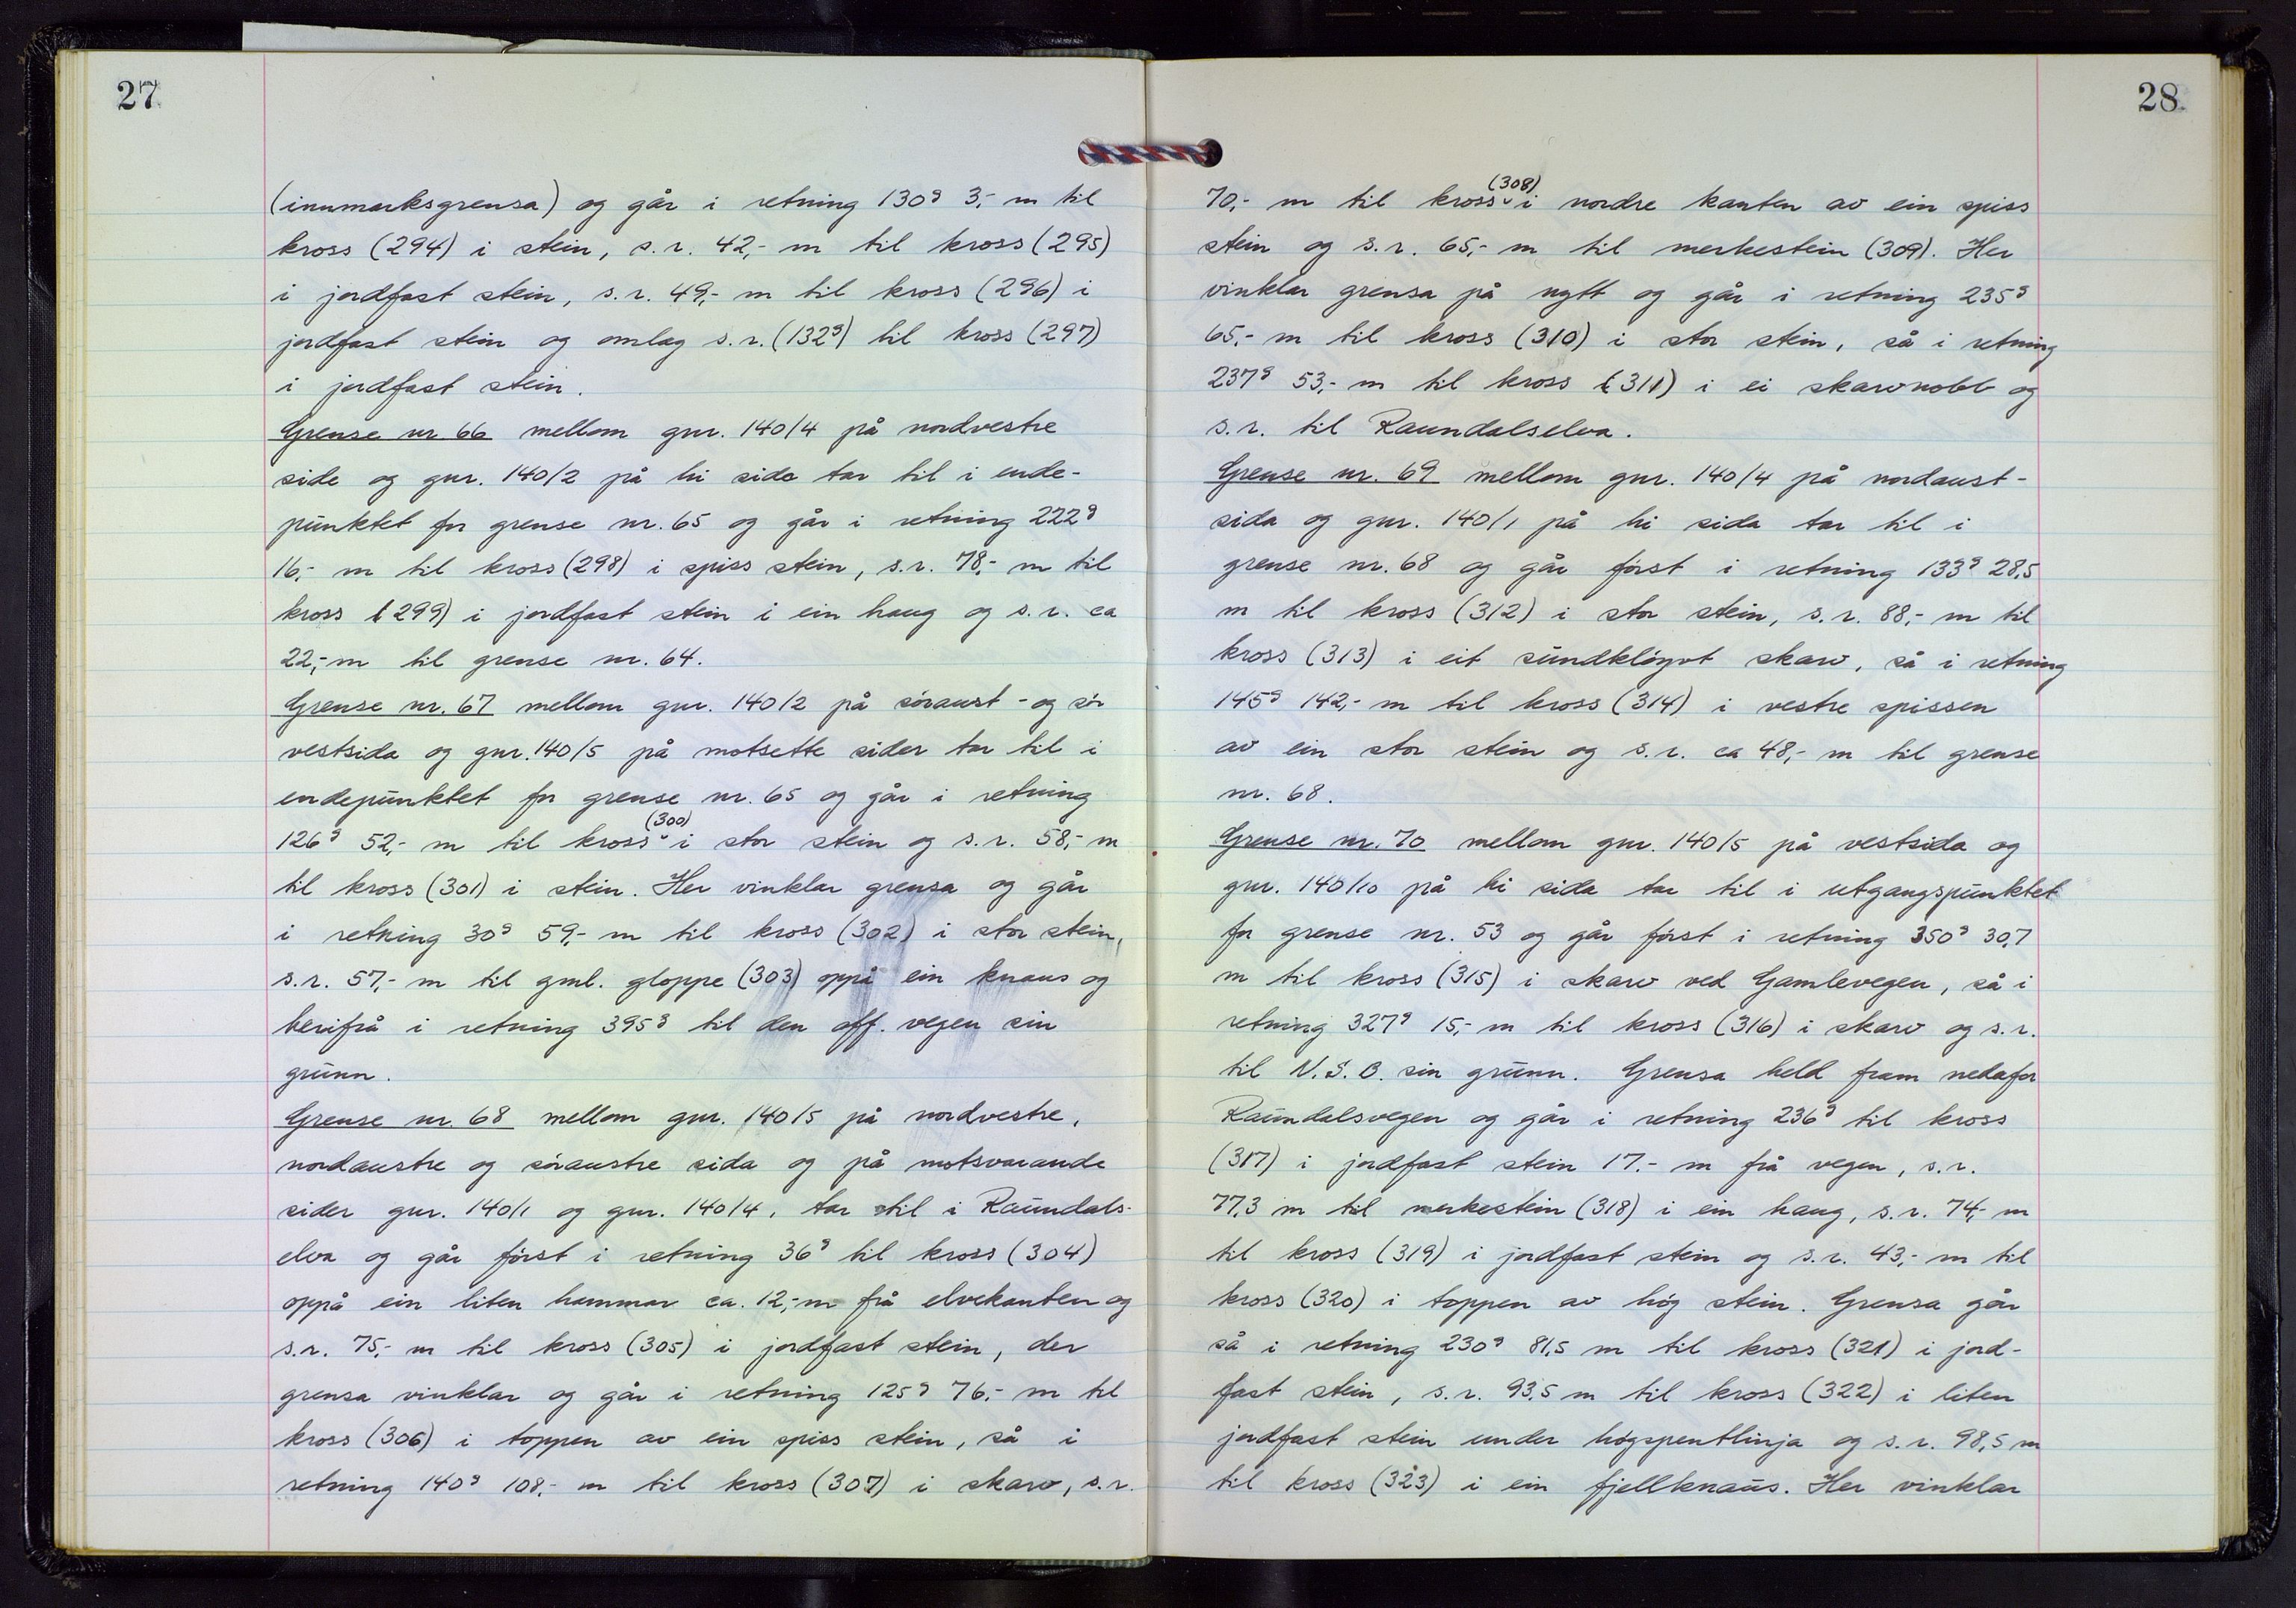 27
(innmarksgrensa) og går i retning 130g 3,- m til
kross (294) i stein, s.r. 42,- m til kross (295)
i jordfast stein, s.r. 49,- m til kross (296) i
jordfast stein og omlag s.r. (132g) til kross (297)
i jordfast stein.
Grense nr 66 mellom gnr. 140/4 på nordvestre
side og gnr. 140/2 på hi side tar til i ende-
punktet for grense nr. 65 og går i retning 222g
16,- m til kross (298) i spiss stein, s.r. 78,- m til
kross (299) i jordfast stein i ein haug og s.r. ca
22,- m til grense nr. 64.
Grense nr. 67 mellom gnr. 140/2 på søraust - og sør
vestsida og gnr. 140/5 på motsette sider tar til i
endepunktet for grense nr. 65 og går i retning
126g 52,- m til kross (300) i stor stein og s.r. 58,- m
til kross (301) i stein. Her vinklar grensa og går
i retning 30g 59,- m til kross (302) i stor stein,
s.r. 57,- m til gml. gloppe (303) oppå ein knaus og
herifrå i retning 395g til den off. vegen sin
grunn.
Grense nr. 68 mellom gnr. 140/5 på nordvestre,
nordaustre og søraustre sida og på motsvarande
sider gnr. 140/1 og gnr. 140/4, tar til i Raundals-
elva og går først i retning 36g til kross (304)
oppå ein liten hammar ca. 12,- m frå elvekanten og
s.r. 75,- m til kross (305) i jordfast stein, der
grensa vinklar og går i retning 125g 76,- m til
kross (306) i toppen av ein spiss stein, så i
retning 140g 108,- m til kross (307) i skarv, s.r.
28
70,- m til kross (308) i nordre kanten av ein spiss
stein og s.r. 65,- m til merkestein (309). Her
vinklar grensa på nytt og går i retning 235g
65,- m til kross (310) i stor stein, så i retning
237g 53,- m til kross (311) i ei skarvnobb og
s.r. til Raundalselva.
Grense nr. 69 mellom gnr. 140/4 på nordaust-
sida og gnr. 140/1 på hi sida tar til i
grense nr. 68 og går først i retning 133g 28,5
m til kross (312) i stor stein, s.r. 88,- m til
kross (313) i eit sundkløyvt skarv, så i retning
145g 142,- m til kross (314) i vestre spissen
av ein stor stein og s.r. ca 48,- m til grense
nr. 68.
Grense nr. 70 mellom gnr. 140/5 på vestsida og
gnr. 140/10 på hi sida tar til i utgangspunktet
for grense nr. 53 og går først i retning 350g 30,7
m til kross (315) i skarv ved Gamlevegen, så i
retning 327g 15,- m til kross (316) i skarv og s.r.
til N.S.B. sin grunn. Grensa held fram nedafor
Raundalsvegen og går i retning 236g til kross
(317) i jordfast stein 17,- m frå vegen, s.r.
77,3 m til merkestein (318) i ein haug, s.r. 74,- m
til kross (319) i jordfast stein og s.r. 43,- m til
kross (320) i toppen av høg stein. Grensa går
så i retning 230g 81,5 m til kross (321) i jord-
fast stein, s.r. 93,5 m til kross (322) i liten
jordfast stein under høgspentlinja og s.r. 98,5 m
til kross (323) i ein fjellknaus. Her vinklar